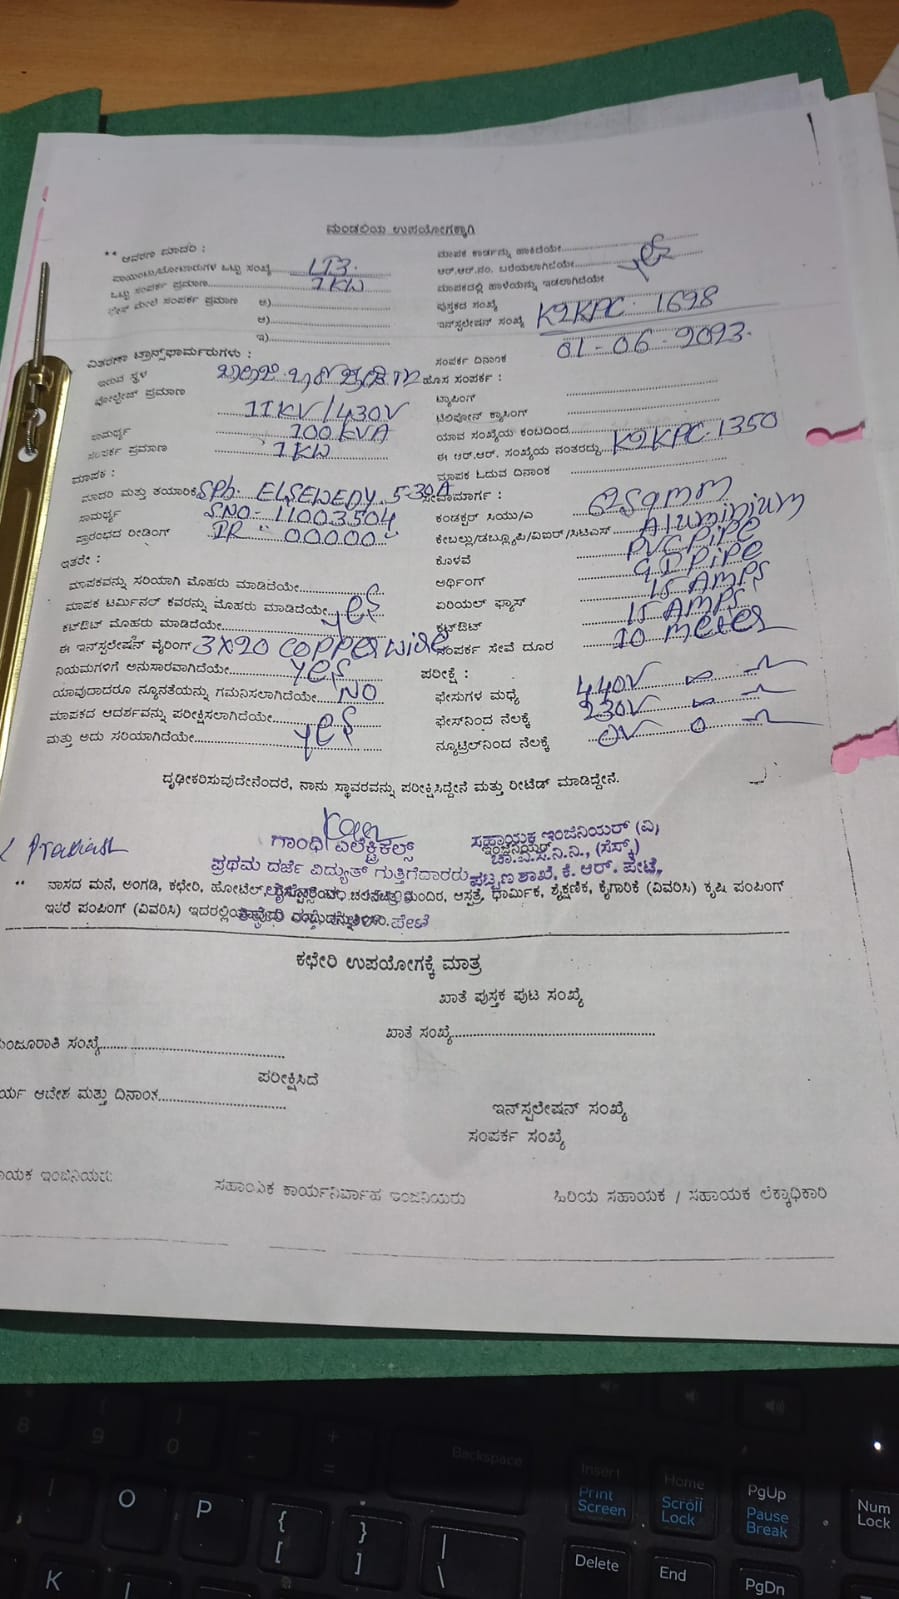 ಮಂಡಲಿಯ ಉಪಯೋಗಕ್ಕಾಗಿ
** ಆವರಣ ಮಾದರಿ :
ಪಾಯಿಂಟು/ಮೋಟಾರುಗಳ ಒಟ್ಟು ಸಂಖ್ಯೆ LT3.
ಒಟ್ಟು ಸಂಪರ್ಕ ಪ್ರಮಾಣ 1KW
ಮೇಲೆ ಸಂಪರ್ಕ ಪ್ರಮಾಣ ಅ)
ಆ)
ಇ)
ವಿತರಣಾ ಟ್ರಾನ್ಸ್‌ಫಾರ್ಮರುಗಳು :
ಇರುವ ಸ್ಥಳ
ವೋಲ್ಟೇಜ್ ಪ್ರಮಾಣ 11KV/430V
ಸಾಮರ್ಥ್ಯ 100 KVA
ಸಂಪರ್ಕ ಪ್ರಮಾಣ 1KW
ಮಾಪಕ :
ಮಾದರಿ ಮತ್ತು ತಯಾರಿಕೆ SPh. ELSEWEDY 5-30A
ಸಾಮರ್ಥ್ಯ SNO- 11003504
ಪ್ರಾರಂಭದ ರೀಡಿಂಗ್ IR- 00000-
ಇತರೇ :
ಮಾಪಕವನ್ನು ಸರಿಯಾಗಿ ಮೊಹರು ಮಾಡಿದೆಯೇ
ಮಾಪಕ ಟರ್ಮಿನಲ್ ಕವರನ್ನು ಮೊಹರು ಮಾಡಿದೆಯೇ yes
ಕಟ್‌ಔಟ್ ಮೊಹರು ಮಾಡಿದೆಯೇ
ಈ ಇನ್‌ಸ್ಟಲೇಷನ್ ವೈರಿಂಗ್ 3X20 COPPER wire
ನಿಯಮಗಳಿಗೆ ಅನುಸಾರವಾಗಿದೆಯೇ yes
ಯಾವುದಾದರೂ ನ್ಯೂನತೆಯನ್ನು ಗಮನಿಸಲಾಗಿದೆಯೇ NO
ಮಾಪಕದ ಆದರ್ಶವನ್ನು ಪರೀಕ್ಷಿಸಲಾಗಿದೆಯೇ
ಮತ್ತು ಅದು ಸರಿಯಾಗಿದೆಯೇ yes
ಮಾಪಕ ಕಾರ್ಡನ್ನು ಹಾಕಿದೆಯೇ
ಆರ್.ಆರ್.ನಂ. ಬರೆಯಲಾಗಿದೆಯೇ yes
ಮಾಪಕದಲ್ಲಿ ಹಾಳೆಯನ್ನು ಇಡಲಾಗಿದೆಯೇ
ಪುಸ್ತಕದ ಸಂಖ್ಯೆ
ಇನ್‌ಸ್ಟಲೇಷನ್ ಸಂಖ್ಯೆ K2KPC- 1698
ಸಂಪರ್ಕ ದಿನಾಂಕ 01-06-2023.
ಹೊಸ ಸಂಪರ್ಕ :
ಟ್ಯಾಪಿಂಗ್
ಟೆಲಿಫೋನ್ ಕ್ಯಾಸಿಂಗ್
ಯಾವ ಸಂಖ್ಯೆಯ ಕಂಬದಿಂದ
ಈ ಆರ್.ಆರ್. ಸಂಖ್ಯೆಯ ನಂತರದ್ದು K2KPC-1350
ಮಾಪಕ ಓದುವ ದಿನಾಂಕ
ಸೇವಾಮಾರ್ಗ :
ಕಂಡಕ್ಟರ್ ಸಿಯು/ಎ Sqmm
ಕೇಬಲ್ಲು/ಡಬ್ಲ್ಯೂಪಿ/ವಿಐಆರ್/ಸಿಟಿಎಸ್ Aluminium
ಕೊಳವೆ PVC PIPE
ಅರ್ಥಿಂಗ್ GI PIPE
ಏರಿಯಲ್ ಫ್ಯೂಸ್ 15 AMPS
ಕಟ್‌ಔಟ್ 15 AMPS
ಸಂಪರ್ಕ ಸೇವೆ ದೂರ 10 meter
ಪರೀಕ್ಷೆ :
ಫೇಸುಗಳ ಮಧ್ಯೆ 440V
ಫೇಸ್‌ನಿಂದ ನೆಲಕ್ಕೆ 230V
ನ್ಯೂಟ್ರಲ್‌ನಿಂದ ನೆಲಕ್ಕೆ 0V 0
ದೃಢೀಕರಿಸುವುದೇನೆಂದರೆ, ನಾನು ಸ್ಥಾವರವನ್ನು ಪರೀಕ್ಷಿಸಿದ್ದೇನೆ ಮತ್ತು ರೀಟೆಡ್ ಮಾಡಿದ್ದೇನೆ.
Prakash
ಗಾಂಧಿ ಎಲೆಕ್ಟ್ರಿಕಲ್ಸ್
ಪ್ರಥಮ ದರ್ಜೆ ವಿದ್ಯುತ್ ಗುತ್ತಿಗೆದಾರರು
ಸಹಾಯಕ ಇಂಜಿನಿಯರ್ (ವಿ)
ಇಂಜಿನಿಯರ್
ಚಾ.ವಿ.ಸ.ನಿ.ನಿ., (ಸೆಸ್ಕ್)
ಪಟ್ಟಣ ಶಾಖೆ. ಕೆ. ಆರ್. ಪೇಟೆ,
** ವಾಸದ ಮನೆ, ಅಂಗಡಿ, ಕಛೇರಿ, ಹೋಟೆಲ್, ಚಲನಚಿತ್ರ ಮಂದಿರ, ಆಸ್ಪತ್ರೆ, ಧಾರ್ಮಿಕ, ಶೈಕ್ಷಣಿಕ, ಕೈಗಾರಿಕೆ (ವಿವರಿಸಿ) ಕೃಷಿ ಪಂಪಿಂಗ್
ಇತರೆ ಪಂಪಿಂಗ್ (ವಿವರಿಸಿ) ಪೇಟೆ
ಕಛೇರಿ ಉಪಯೋಗಕ್ಕೆ ಮಾತ್ರ
ಖಾತೆ ಪುಸ್ತಕ ಪುಟ ಸಂಖ್ಯೆ
ಮಂಜೂರಾತಿ ಸಂಖ್ಯೆ
ಖಾತೆ ಸಂಖ್ಯೆ
ಪರೀಕ್ಷಿಸಿದೆ
ಆದೇಶ ಮತ್ತು ದಿನಾಂಕ
ಇನ್‌ಸ್ಟಲೇಷನ್ ಸಂಖ್ಯೆ
ಸಂಪರ್ಕ ಸಂಖ್ಯೆ
ಇಂಜಿನಿಯರು
ಸಹಾಯಕ ಕಾರ್ಯನಿರ್ವಾಹಕ ಇಂಜನಿಯರು
ಹಿರಿಯ ಸಹಾಯಕ / ಸಹಾಯಕ ಲೆಕ್ಕಾಧಿಕಾರಿ
8
9
0
Backspace
O
P
{
[
}
]
|
\
Insert
Print
Screen
Home
Scroll
Lock
PgUp
Pause
Break
Num
Lock
K
Delete
End
PgDn